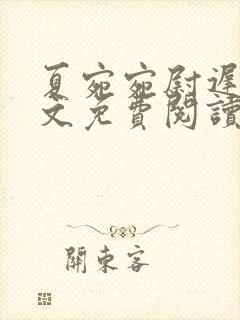 夏宛宛尉遲
文免費閱讀
關東客